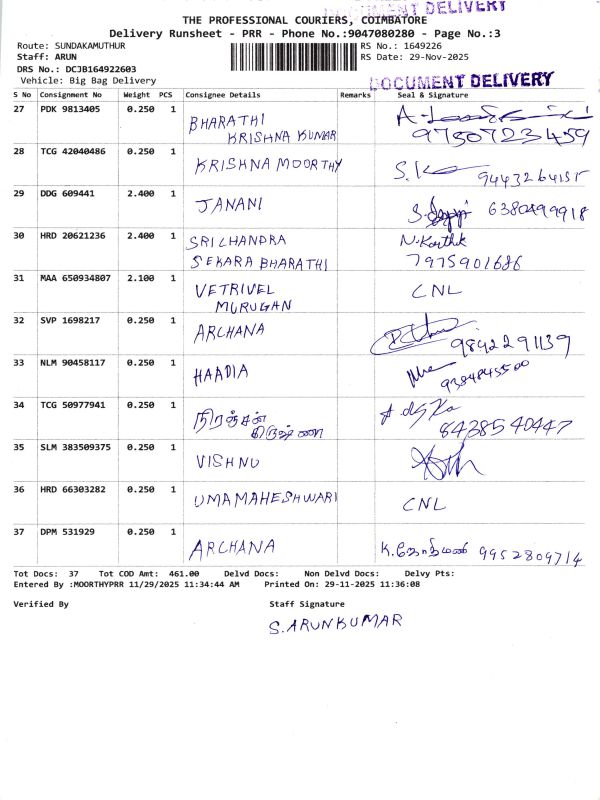 DOCUMENT DELIVERY
THE PROFESSIONAL COURIERS, COIMBATORE
Delivery Runsheet - PRR - Phone No.:9047080280 - Page No.:3
Route: SUNDAKAMUTHUR RS No.: 1649226
Staff: ARUN RS Date: 29-Nov-2025
DRS No.: DCJB164922603
Vehicle: Big Bag Delivery
DOCUMENT DELIVERY
S No Consignment No Weight PCS Consignee Details Remarks Seal & Signature
27 PDK 9813405 0.250 1 BHARATHI
KRISHNA KUMAR 9750723459
28 TCG 42040486 0.250 1 KRISHNA MOORTHY 9443264155
29 DDG 609441 2.400 1 JANANI 6380499918
30 HRD 20621236 2.400 1 SRICHANDRA N.Karthik
SEKARA BHARATHI 7975901686
31 MAA 650934807 2.100 1 VETRIVEL CNL
MURUGAN
32 SVP 1698217 0.250 1 ARCHANA 9842291139
33 NLM 90458117 0.250 1 HAADIA 9384845500
34 TCG 50977941 0.250 1 நிரஞ்சன்
8438540447
35 SLM 383509375 0.250 1 VISHNU
36 HRD 66303282 0.250 1 UMAMAHESHWARI CNL
37 DPM 531929 0.250 1 ARCHANA 9952809714
Tot Docs: 37 Tot COD Amt: 461.00 Delvd Docs: Non Delvd Docs: Delvy Pts:
Entered By :MOORTHYPRR 11/29/2025 11:34:44 AM Printed On: 29-11-2025 11:36:08
Verified By Staff Signature
S.ARUNKUMAR